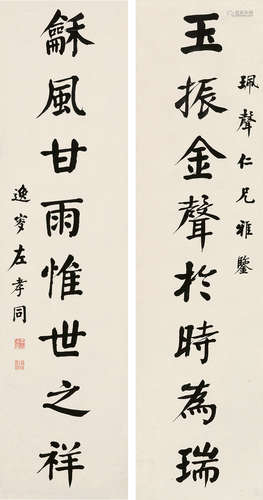 珮聲仁兄雅鑒
玉振金聲於時為瑞
龢風甘雨惟世之祥
逸叟左孝同